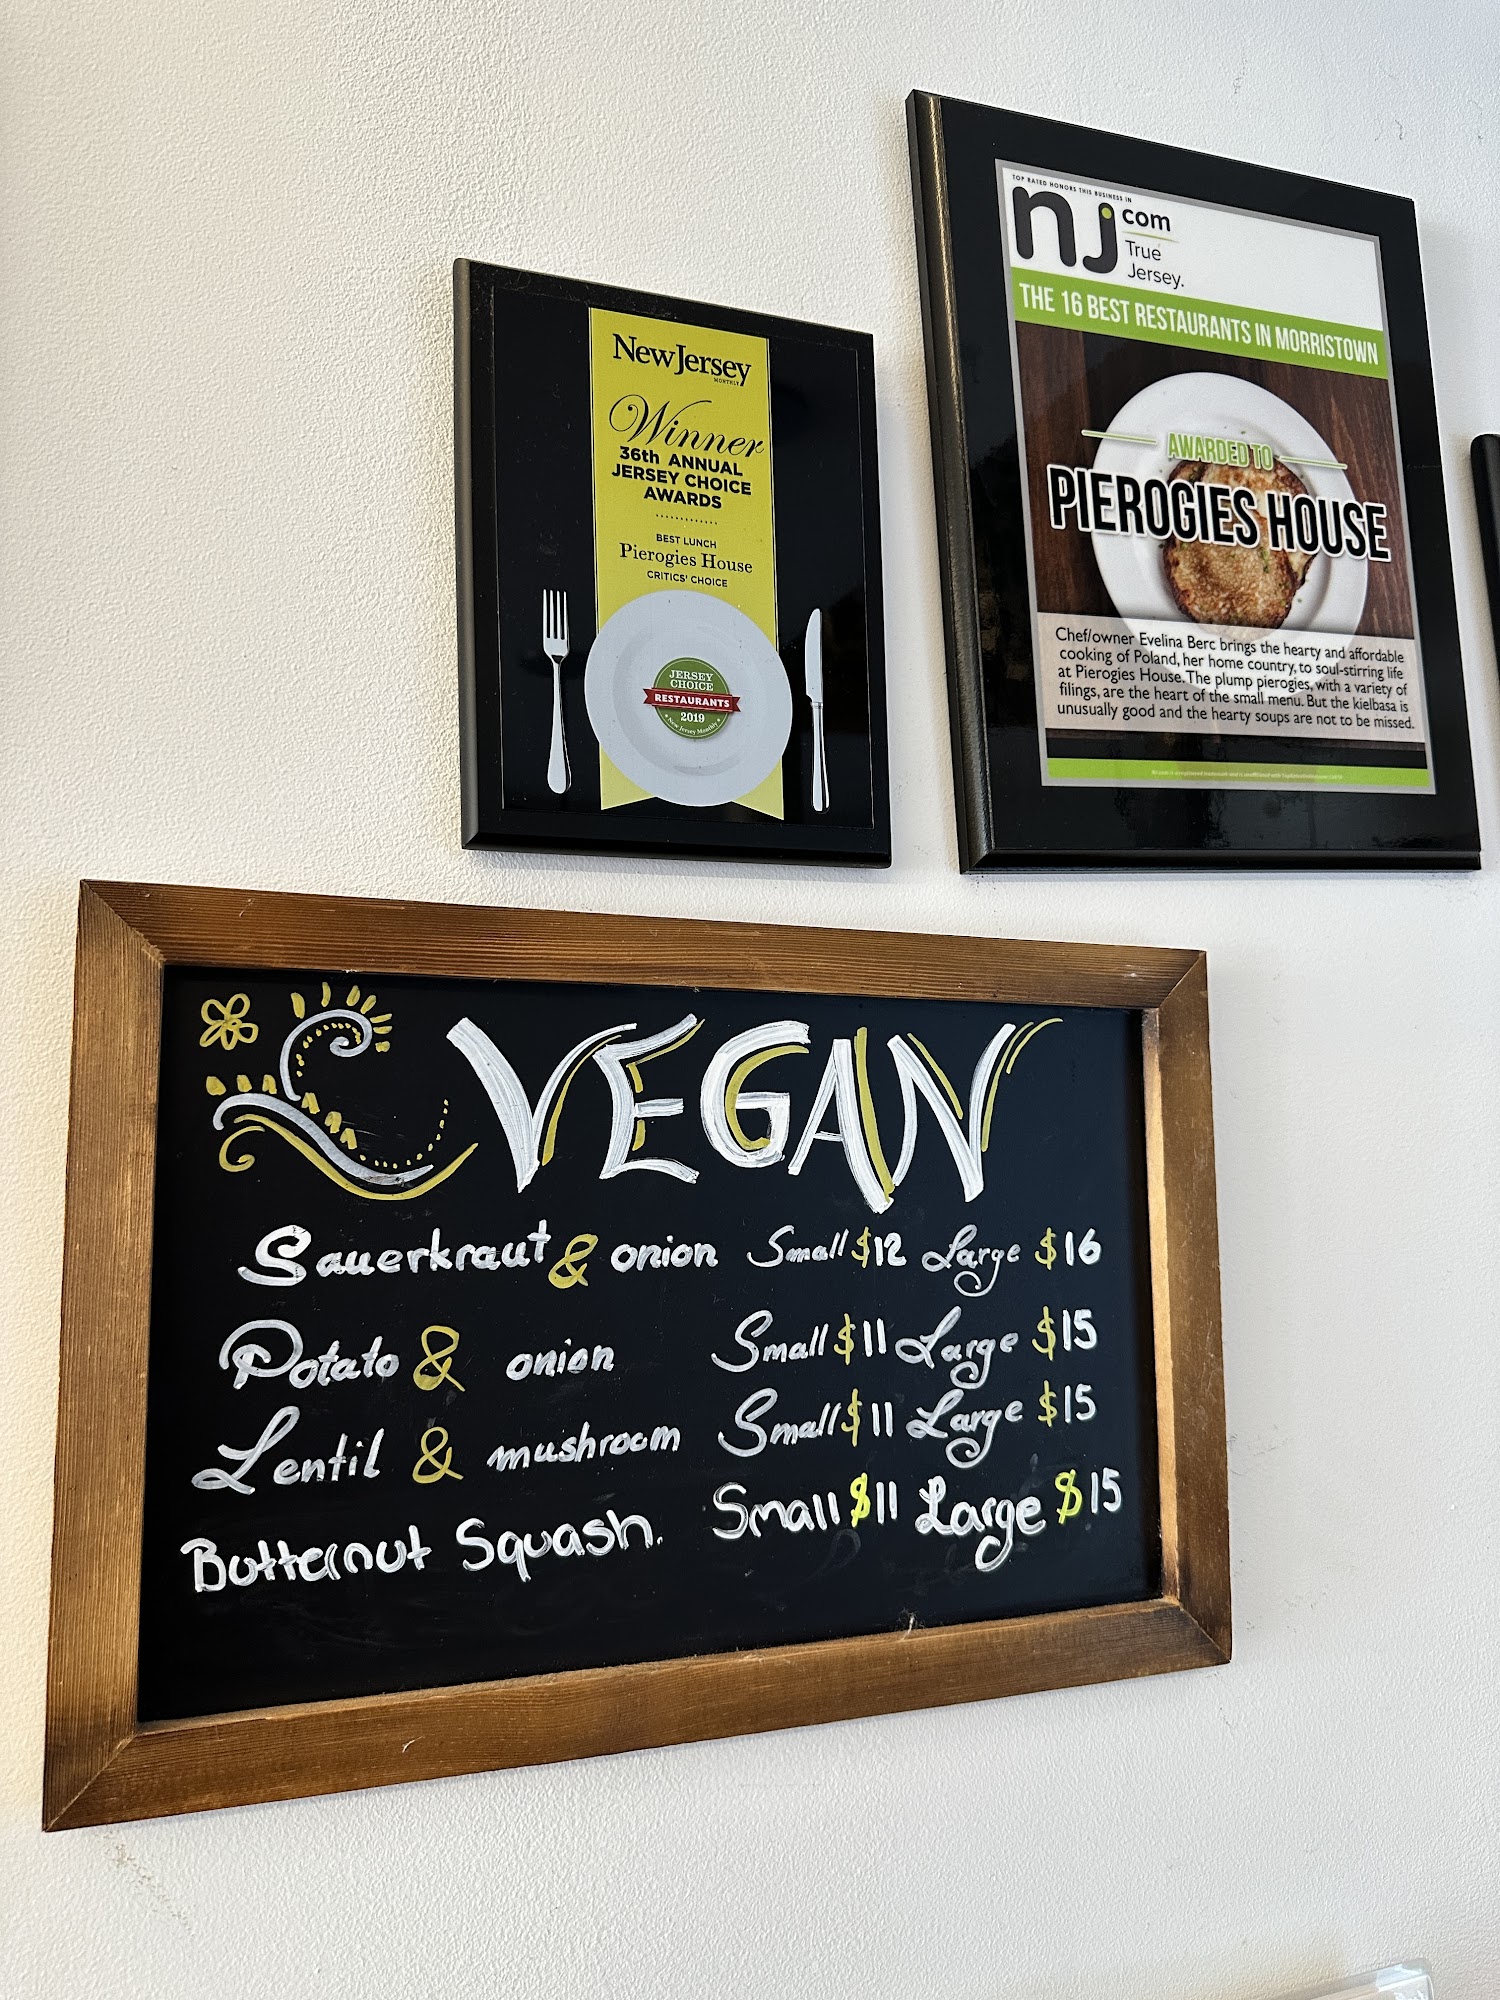 TOP RATED HONORS THIS BUSINESS IN
nj com
True
Jersey.
THE 16 BEST RESTAURANTS IN MORRISTOWN
AWARDED TO
PIEROGIES HOUSE
Chef/owner Evelina Berc brings the hearty and affordable
cooking of Poland, her home country, to soul-stirring life
at Pierogies House. The plump pierogies, with a variety of
filings, are the heart of the small menu. But the kielbasa is
unusually good and the hearty soups are not to be missed.
New Jersey
MONTHLY
Winner
36th ANNUAL
JERSEY CHOICE
AWARDS
BEST LUNCH
Pierogies House
CRITICS' CHOICE
JERSEY
CHOICE
RESTAURANTS
2019
New Jersey Monthly
VEGAN
Sauerkraut & onion Small $12 Large $16
Potato & onion Small $11 Large $15
Lentil & mushroom Small $11 Large $15
Butternut Squash. Small $11 Large $15